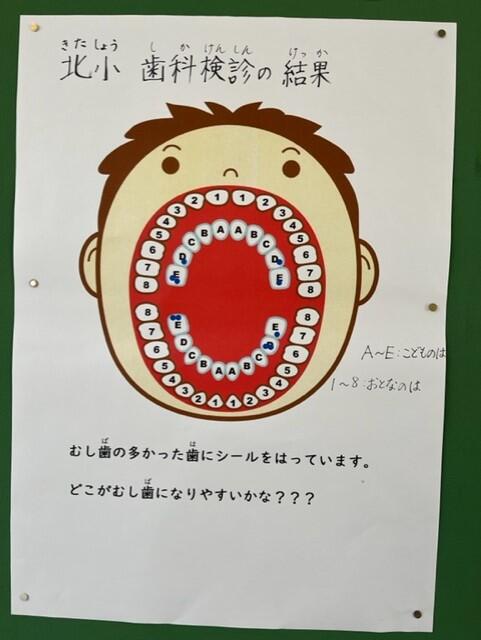 きたしょう しかけんしん けっか
北小 歯科検診の結果
8 7 6 5 4 3 2 1 1 2 3 4 5 6 7 8
E D C B A A B C D E
E D C B A A B C D E
8 7 6 5 4 3 2 1 1 2 3 4 5 6 7 8
A〜E：こどものは
1〜8：おとなのは
ば は
むし歯の多かった歯にシールをはっています。
ば
どこがむし歯になりやすいかな？？？